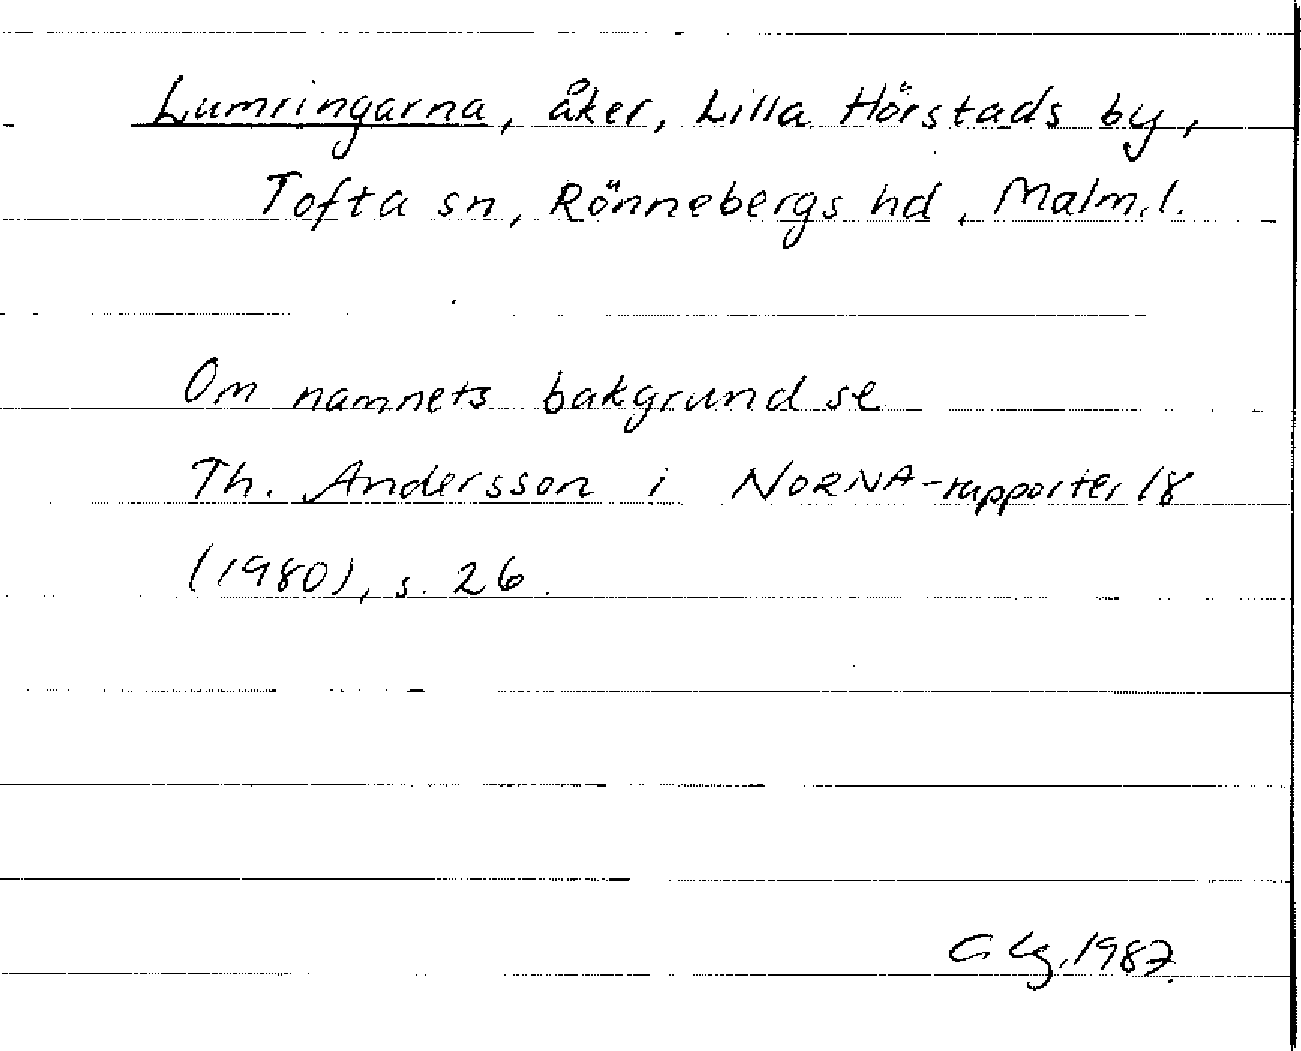 Lumringarna, åker, Lilla Hörstads by,
Tofta sn, Rönnebergs hd, Malm.l.
Om namnets bakgrund se
Th. Andersson i NORNA-rapporter 18
(1980), s. 26.
1987.